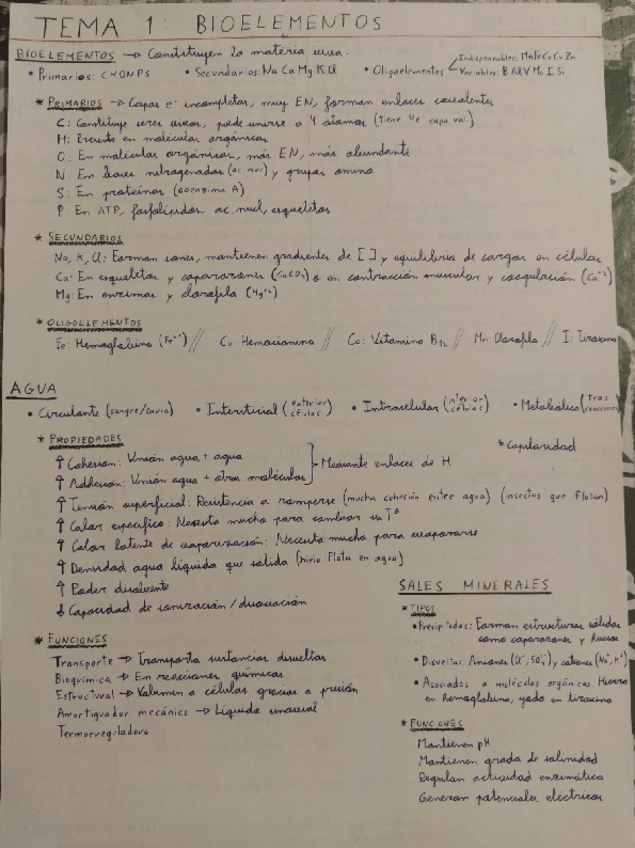 TEMA 1: BIOELEMENTOS
BIOELEMENTOS → Constituyen la materia viva.
• Primarios: CHONPS • Secundarios: Na Ca Mg K Cl • Oligoelementos
Indispensables: Mn Fe Co Cu Zn
Variables: B Al V Mo I Si
* PRIMARIOS → Capas e⁻ incompletas, muy EN, forman enlaces covalentes
C: Constituye seres vivos, puede unirse a 4 átomos (tiene 4e⁻ capa val.)
H: Presente en moléculas orgánicas
O: En moléculas orgánicas, más EN, más abundante
N En bases nitrogenadas (ac nuc) y grupos amino
S: En proteínas (coenzima A)
P En ATP, fosfolípidos, ac. nucl, esqueletos
* SECUNDARIOS
Na, K, Cl: Forman iones, mantienen gradientes de [ ] y equilibrio de cargas en células
Ca: En esqueletos y caparazones (CaCO₃) o en contracción muscular y coagulación (Ca⁺²)
Mg: En enzimas y clorofila (Mg⁺²)
* OLIGOELEMENTOS
Fe: Hemoglobina (Fe²⁺) // Cu Hemocianina // Co: Vitamina B₁₂ // Mn: Clorofila // I: Tiroxina
AGUA
• Circulante (sangre/savia) • Intersticial (exterior células) • Intracelular (interior células) • Metabólica (tras reacciones)
* PROPIEDADES
* Capilaridad
↑ Cohesión: Unión agua + agua
↑ Adhesión: Unión agua + otras moléculas
Mediante enlaces de H
↑ Tensión superficial: Resistencia a romperse (mucha cohesión entre agua) (insectos que flotan)
↑ Calor específico: Necesita mucho para cambiar su Tª
↑ Calor latente de vaporización: Necesita mucho para evaporarse
↑ Densidad agua líquida que sólida (hielo flota en agua)
↑ Poder disolvente
↓ Capacidad de ionización / disociación
* FUNCIONES
Transporte → Transporta sustancias disueltas
Bioquímica → En reacciones químicas
Estructural → Volumen a células gracias a presión
Amortiguador mecánico → Líquido sinovial
Termorreguladora
SALES MINERALES
* TIPOS
• Precipitadas: Forman estructuras sólidas
como caparazones y huesos
• Disueltas: Aniones (Cl⁻, SO₄²⁻) y cationes (Na⁺, K⁺)
• Asociadas a moléculas orgánicas. Hierro
en hemoglobina, yodo en tiroxina
* FUNCIONES
Mantienen pH
Mantienen grado de salinidad
Regulan actividad enzimática
Generan potenciales eléctricos